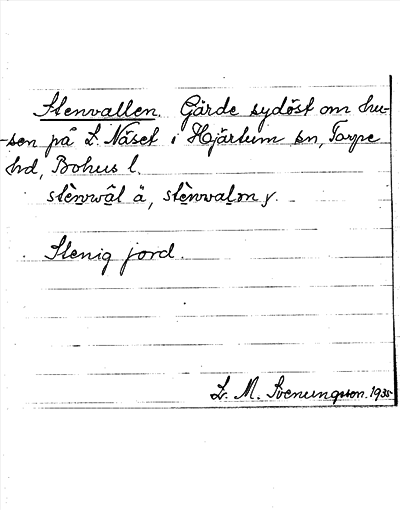 Stenvallen. Gärde sydöst om hu-
-sen på L. Näset i Hjärtum sn, Torpe
hd, Bohus l.
stènvàl ä, stènvalən y.
Stenig jord.
L. M. Svenungsson. 1935